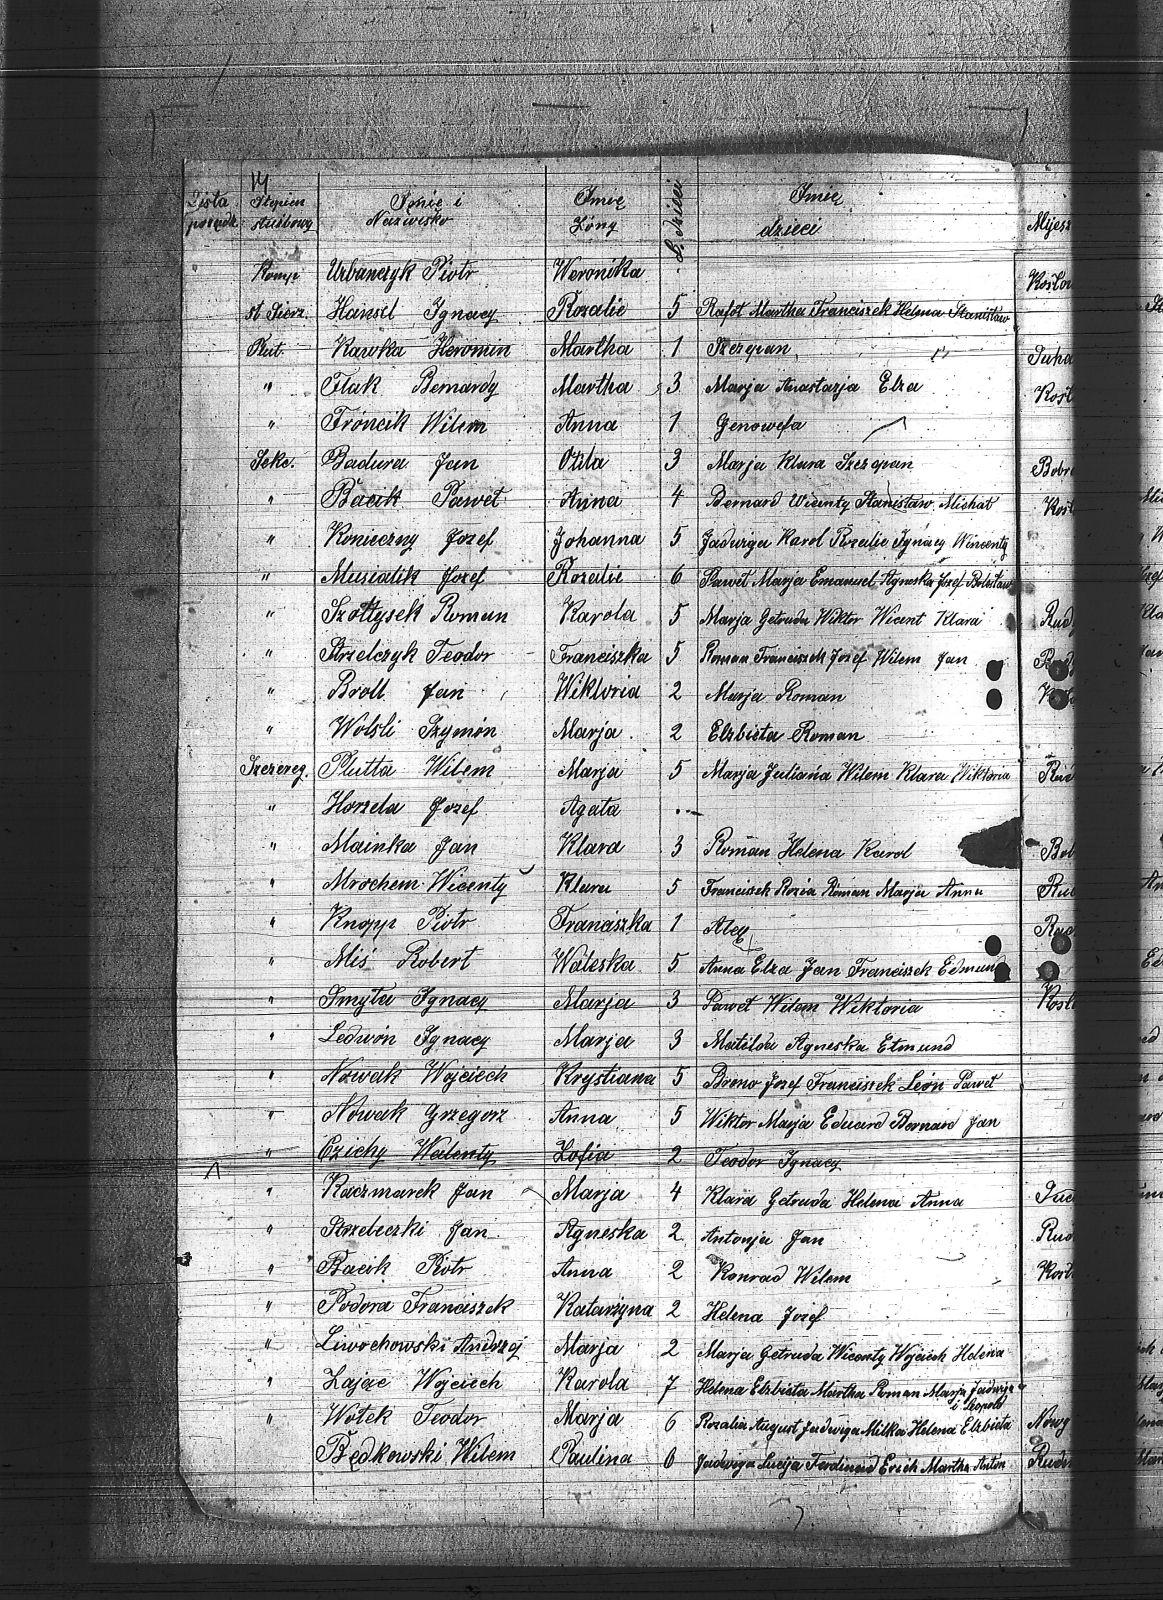 14
Lista porządk. Stopien służbowy Imie i Nazwisko Imię Żony L. dzieci Imię dzieci Miejsz
Komp Urbanczyk Piotr Weronika Kosło
st Sierz. Hansel Ignacy Rozalie 5 Rafoł Martha Franciszek Helena Stanisław
Plut. Kawka Heromin Martha 1 Szczepan
" Flak Bernardy Martha 3 Marja Anastazja Elza Kosł
" Fróncik Wilem Anna 1 Genowefa
Sekc. Badura Jan Otila 3 Marja Klara Szczepan Bobr
" Bacik Paweł Anna 4 Bernard Wicenty Stanisław Michał Kosł
" Konieczny Jozef Johanna 5 Jadwiga Karol Rozalie Ignacy Wincenty
" Musialik Jozef Rozalie 6 Paweł Marja Emanuel Agneska Jozef Bolesław
" Szołtysek Roman Karola 5 Marja Getruda Wiktor Wicent Klara Rudy
" Strzelczyk Teodor Franciszka 5 Roman Franciszek Jozef Wilem Jan
" Broll Jan Wiktoria 2 Marja Roman
" Wolsli Szymón Marja 2 Elzbieta Roman
Szereg. Plutta Wilem Marja 5 Marja Juliana Wilem Klara Wiktoria
" Horzela Jozef Agata
" Mainka Jan Klara 3 Roman Helena Karol Bob
" Mrochem Wicenty Klara 5 Francisek Rozia Roman Marja Anna
" Knopp Piotr Franciszka 1 Alex
" Miś Robert Waleska 5 Anna Elza Jan Franciszek Edmund
" Smyła Ignacy Marja 3 Paweł Wilem Wiktoria
" Ledwón Ignacy Marja 3 Matilda Agneska Etmund
" Nowak Wojciech Krystiana 5 Brono Jozef Franciszek León Paweł
" Nowak Grzegorz Anna 5 Wiktor Marja Eduard Bernard Jan
" Czichy Walenty Zofia 2 Teodor Ignacy
" Kaczmarek Jan Marja 4 Klara Getruda Helena Anna
" Strzeleczki Jan Agneska 2 Antonja Jan
" Bacik Piotr Anna 2 Konrad Wilem
" Podora Franciszek Katarzyna 2 Helena Jozef
" Liwochowski Andrzej Marja 2 Marja Getruda Wicenty Wojciech Helena
" Zając Wojciech Karola 7 Helena Elzbieta Martha Roman Marja Jadwiga i Leopold
" Wołek Teodor Marja 6 Rozalia August Jadwiga Milka Helena Elzbieta Nowy
Będkowski Wilem Paulina 6 Jadwiga Lucja Ferdinad Erich Martha Anton